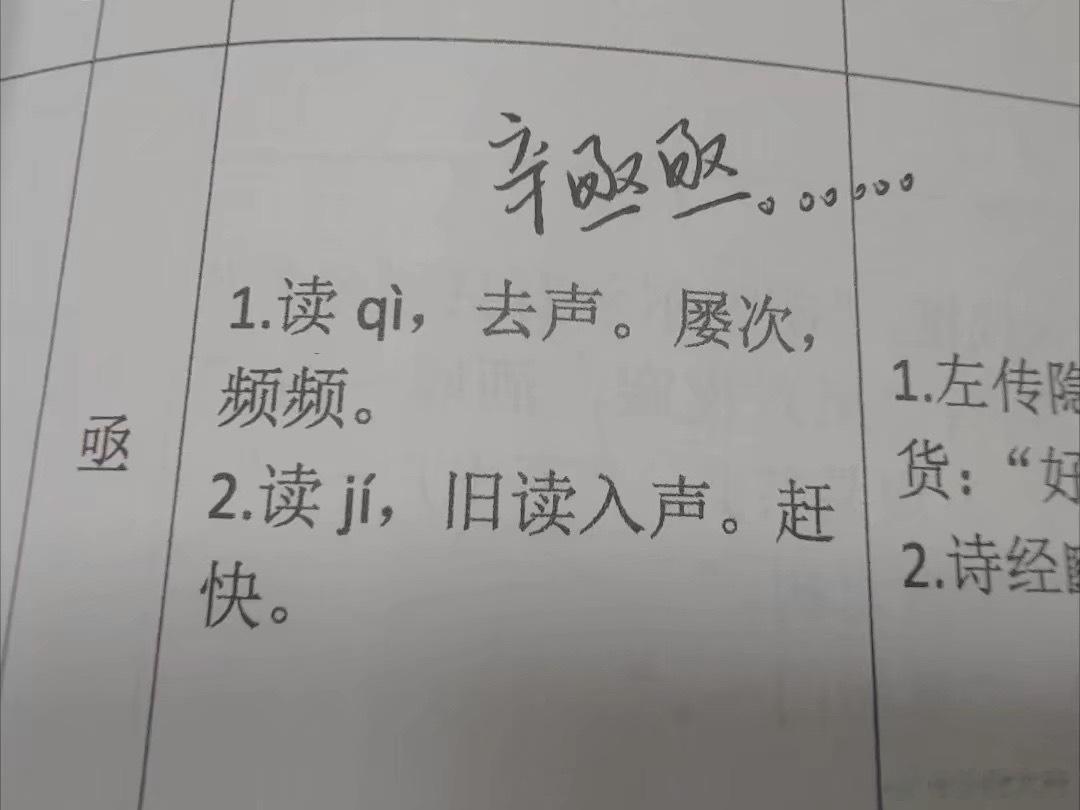 辛亟亟。。。。。。
1.读 qì，去声。屡次，
频频。
亟
2.读 jí，旧读入声。赶
快。
1.左传隐
货：“好
2.诗经豳